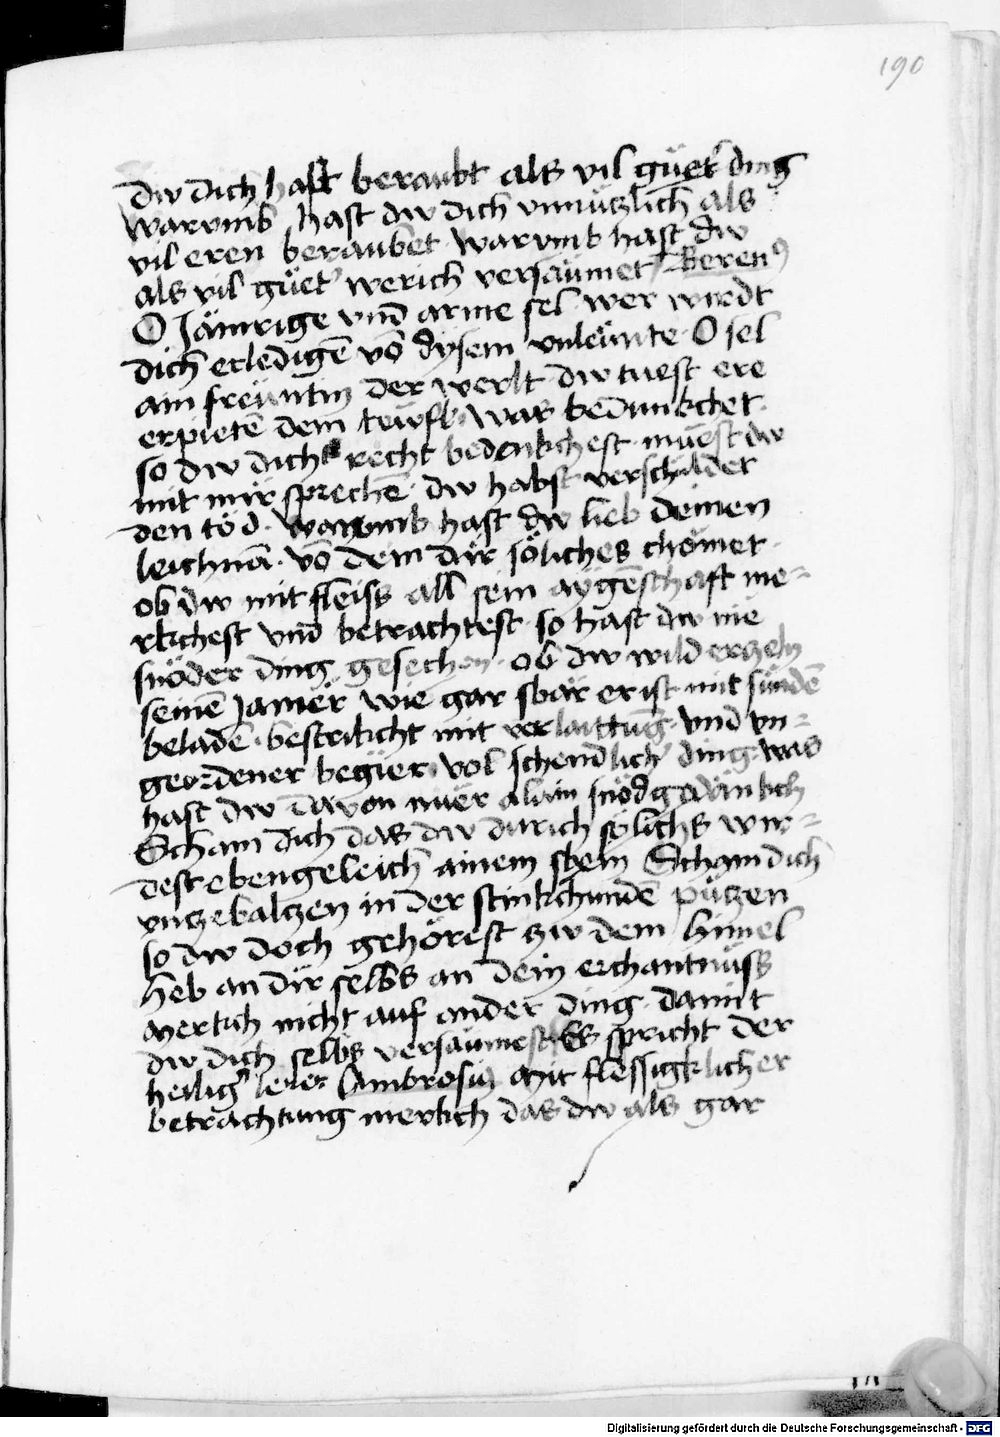 190
dw dich hast beraubt als vil güet' ding
warvmb hast dw dich vnnützlich als
vil eren beraubet warvmb hast dw
als vil güet' werich versäumet
O Jämrige vnd arme sel wer wirdt
dich erledigē vō dysem vnleümte · O sel
ain freüntin der werlt dw tuest ere
erpietē dem teüfl · was bedunkchet
so dw dich recht bedenkchest · muest dw
mit mir sprechē · dw habst verschuldet
den töd · warvmb hast dw lieb deinen
leichnā · vō dem dir söliches chömet ·
ob dw mit fleiss all sein aygēschaft me-
rkchest vnd betrachtest · so hast dw nie
snöder ding gesechen · ob dw wild erzeln
seinē Jamer wie gar sbär er ist mit sündē
beladē · bestrikcht mit verlaittung · vnd vn-
geordener begier vol schendlich' ding · was
hast dw davon nuer alain snöd gedänkch
Scham dich das dw durich sölichs wir-
dest ebengeleich ainem sbein Scham dich
vntzebaltzen in der stinkchundē pützen
so dw doch gehörest zw dem himel
heb an dir selbs an dein erchantnüss
merkch nicht auf ander ding · damit
dw dich selbs versäumest Es spricht der
heilig' lerer Ambrosius mit flessigklicher
betrachtung merkch das dw als gar
Digitalisierung gefördert durch die Deutsche Forschungsgemeinschaft - DFG